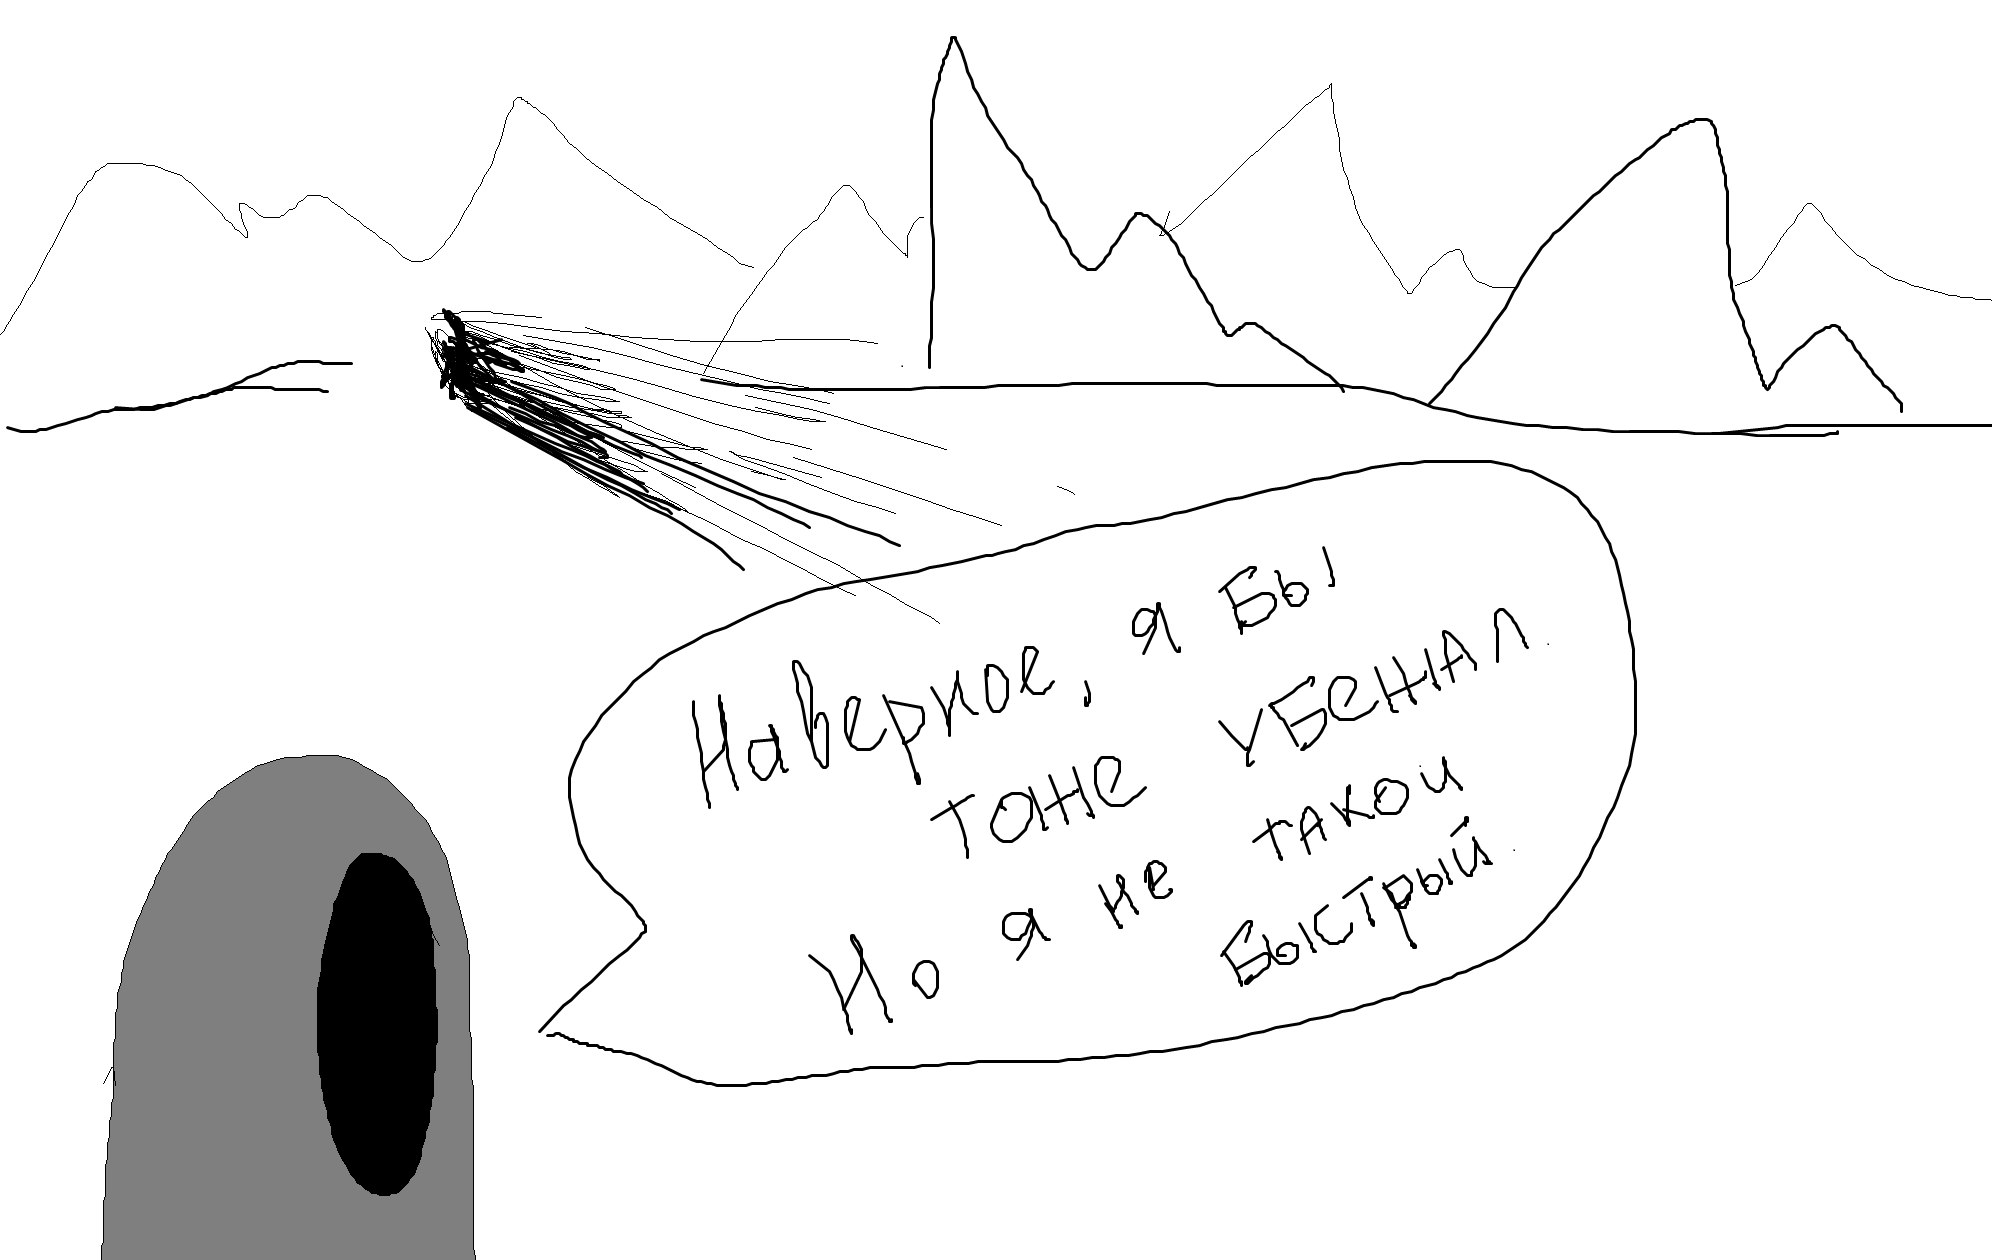 Наверное, я бы
тоже убежал.
Но я не такой
быстрый.